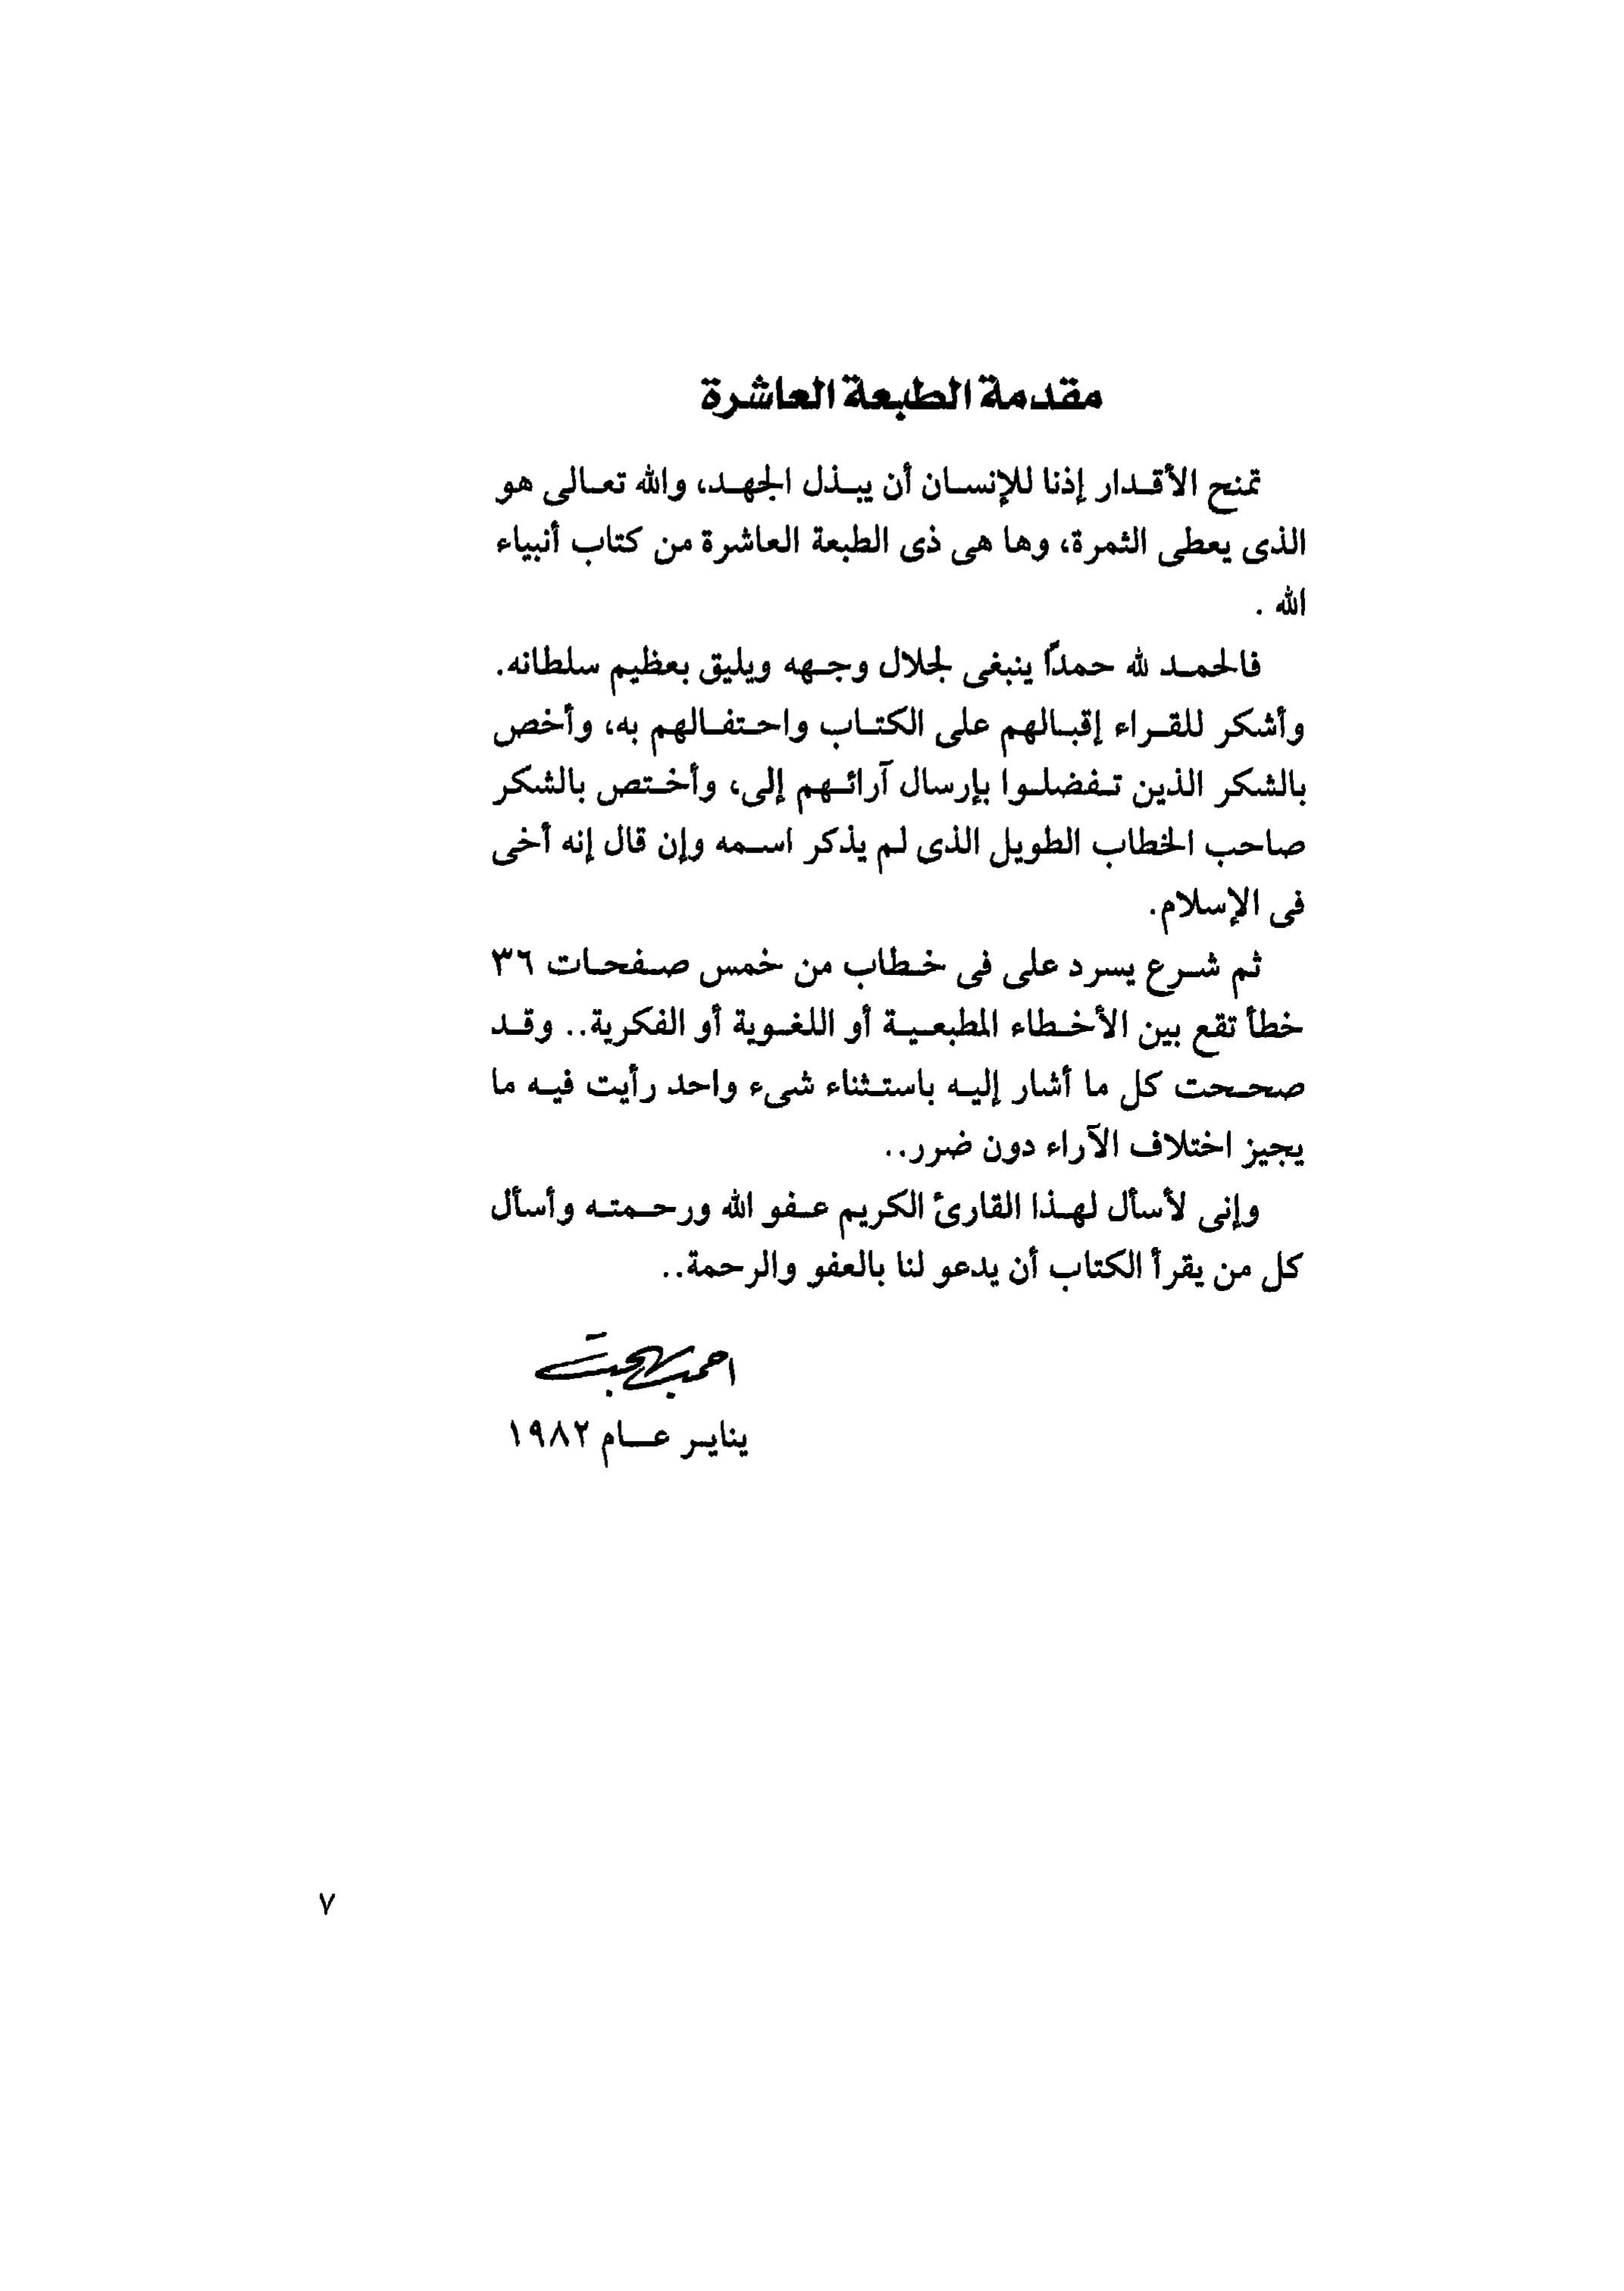 مقدمة الطبعة العاشرة
تمنح الأقدار إذنا للإنسان أن يبذل الجهد، والله تعالى هو
الذى يعطى الثمرة، وها هى ذى الطبعة العاشرة من كتاب أنبياء
الله .
فالحمد لله حمدًا ينبغى لجلال وجهه ويليق بعظيم سلطانه.
وأشكر للقراء إقبالهم على الكتاب واحتفالهم به، وأخص
بالشكر الذين تفضلوا بإرسال آرائهم إلى، وأختص بالشكر
صاحب الخطاب الطويل الذى لم يذكر اسمه وإن قال إنه أخى
فى الإسلام.
ثم شرع يسرد على فى خطاب من خمس صفحات ٣٦
خطأ تقع بين الأخطاء المطبعية أو اللغوية أو الفكرية.. وقد
صححت كل ما أشار إليه باستثناء شىء واحد رأيت فيه ما
يجيز اختلاف الآراء دون ضرر..
وإنى لأسأل لهذا القارئ الكريم عفو الله ورحمته وأسأل
كل من يقرأ الكتاب أن يدعو لنا بالعفو والرحمة..
احمد بهجت
يناير عام ١٩٨٢
٧